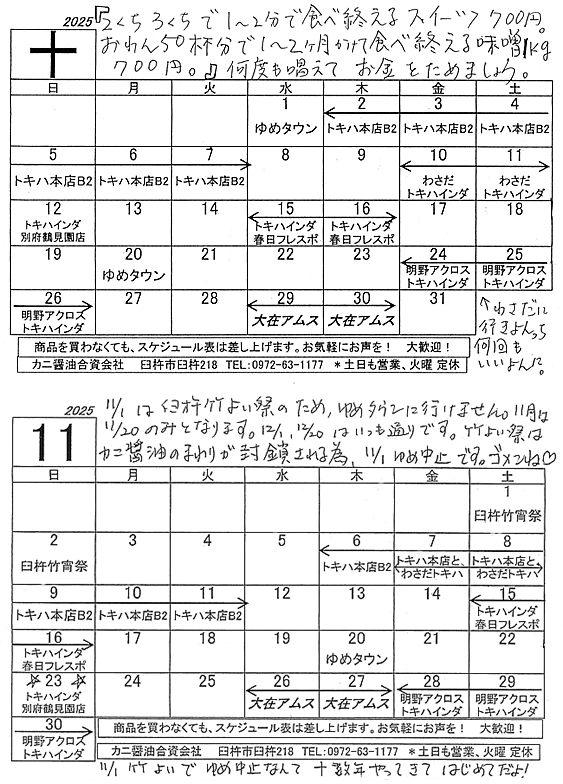 2025『2くち3くちで1〜2分で食べ終えるスイーツ700円。
十 おわん50杯分で1〜2ヶ月かけて食べ終える味噌1kg
700円。』何度も唱えて お金をためましょう。
日 月 火 水 木 金 土
1 2 3 4
ゆめタウン トキハ本店B2 トキハ本店B2 トキハ本店B2
5 6 7 8 9 10 11
トキハ本店B2 トキハ本店B2 トキハ本店B2 わさだ わさだ
トキハインダ トキハインダ
12 13 14 15 16 17 18
トキハインダ トキハインダ トキハインダ
別府鶴見園店 春日フレスポ 春日フレスポ
19 20 21 22 23 24 25
ゆめタウン 明野アクロス 明野アクロス
トキハインダ トキハインダ
26 27 28 29 30 31
明野アクロス 大在アムス 大在アムス
トキハインダ
↑わさだに
行きよんっち
何回も
いいよんに。
商品を買わなくても、スケジュール表は差し上げます。お気軽にお声を! 大歓迎!
カニ醤油合資会社 臼杵市臼杵218 TEL:0972-63-1177 *土日も営業、火曜 定休
2025 11/1は臼杵竹よい祭のため、ゆめタウンに行けません。11月は
11 11/20のみとなります。12/1、12/20はいつも通りです。竹よい祭は
カニ醤油のまわりが封鎖される為、11/1ゆめ中止です。ゴメンね♡
日 月 火 水 木 金 土
1
臼杵竹宵祭
2 3 4 5 6 7 8
臼杵竹宵祭 トキハ本店B2 トキハ本店と、 トキハ本店と、
わさだトキハ わさだトキハ
9 10 11 12 13 14 15
トキハ本店B2 トキハ本店B2 トキハ本店B2 トキハインダ
春日フレスポ
16 17 18 19 20 21 22
トキハインダ ゆめタウン
春日フレスポ
☆23☆ 24 25 26 27 28 29
トキハインダ 大在アムス 大在アムス 明野アクロス 明野アクロス
別府鶴見園店 トキハインダ トキハインダ
30
明野アクロス
トキハインダ
商品を買わなくても、スケジュール表は差し上げます。お気軽にお声を! 大歓迎!
カニ醤油合資会社 臼杵市臼杵218 TEL:0972-63-1177 *土日も営業、火曜 定休
11/1 竹よいで ゆめ中止なんて 十数年やってきて はじめてだよ!